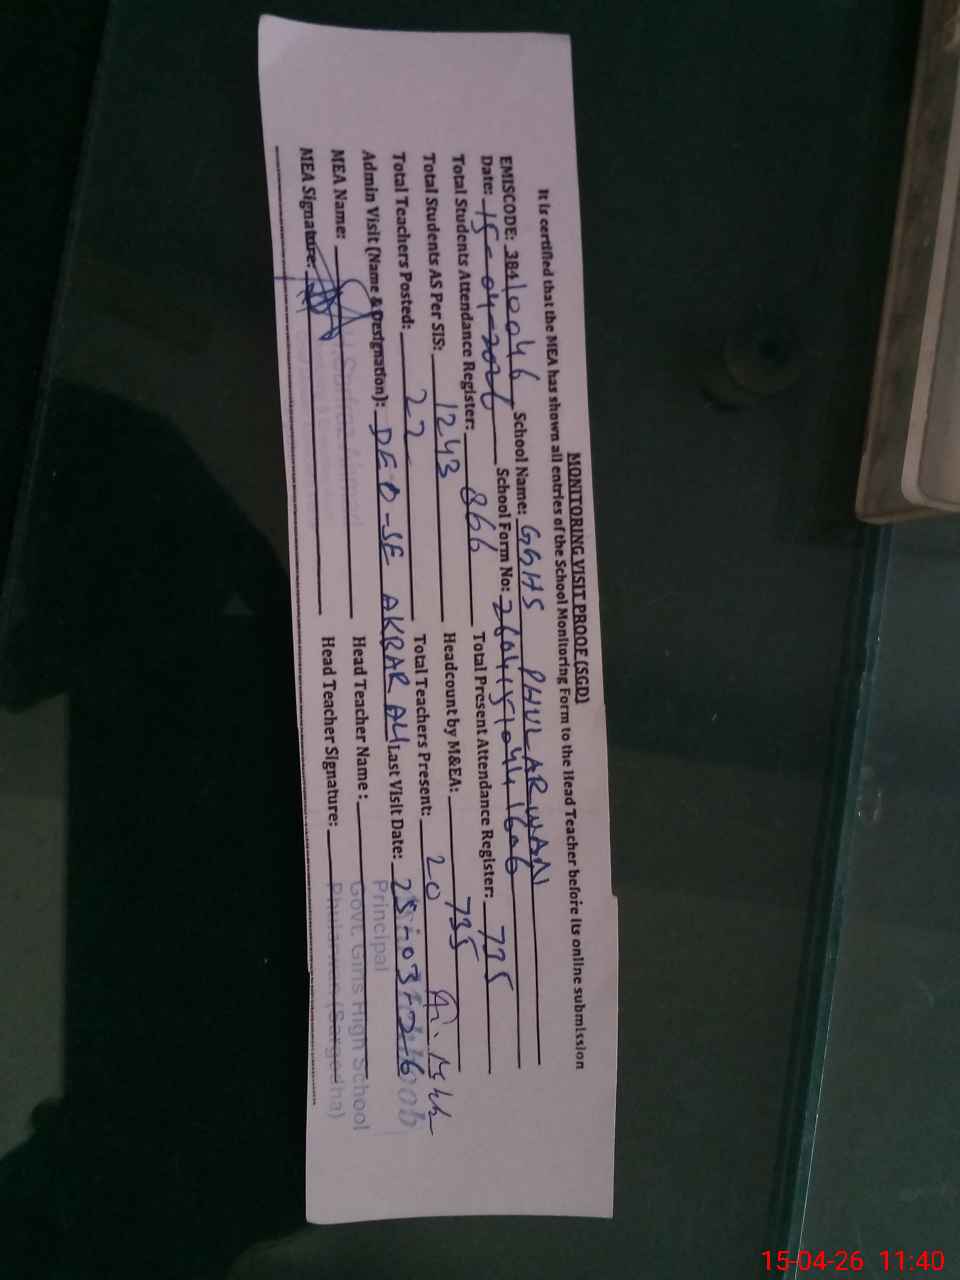 MONITORING VISIT PROOF (SGD)
It is certified that the MEA has shown all entries of the School Monitoring Form to the Head Teacher before its online submission
EMISCODE: 38410046 School Name: GGHS PHULARWAN
Date: 15-04-2026 School Form No:
Total Students Attendance Register: 866 Total Present Attendance Register: 735
Total Students AS Per SIS: 1243 Headcount by M&EA: 735
Total Teachers Posted: 22 Total Teachers Present: 20
Admin Visit (Name & Designation): DEO-SE AKBAR ALI Last Visit Date: 25-03-2026
MEA Name: Head Teacher Name:
MEA Signature: Head Teacher Signature:
Principal
Govt. Girls High School
Phularwan (Sargodha)
15-04-26 11:40